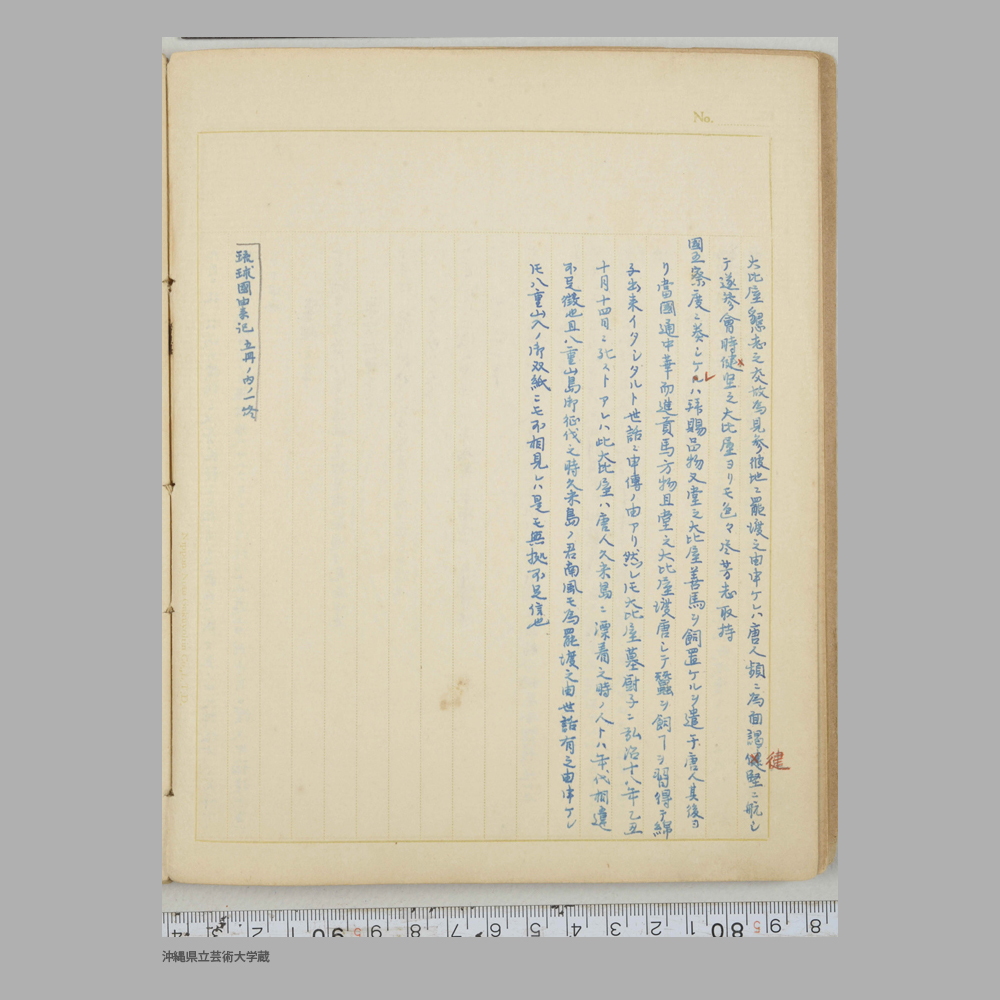 No.
大比屋懇志之交故為見参彼地ニ罷渡之由申ケレハ唐人頻ニ為面謁健堅ニ航シ
健
テ遂参會時健堅之大比屋ヨリモ色々尽芳志取持
國王察度ニ奏シケレハ
賜品物又堂之大比屋善馬ヲ飼置ケルヲ遣于唐人其後ヨ
リ當國通中華而進貢馬方物且堂之大比屋渡唐シテ蠶ヲ飼フヲ習得テ綿
子出来イタシタルト世話ニ申傳ノ由アリ然レモ大比屋墓厨子ニ弘治十八年乙丑
十月十四日ニ死ストアレハ此大比屋ハ唐人久米島ニ漂着之時ノ人トハ年代相違
不足徴也且八重山島御征伐之時久米島ノ君南風モ為罷渡之由世話有之由申ケレ
モ八重山入ノ御双紙ニモ不相見レハ是モ無拠不足信也
琉球國由来記 五冊ノ内ノ一終
沖縄県立芸術大学蔵